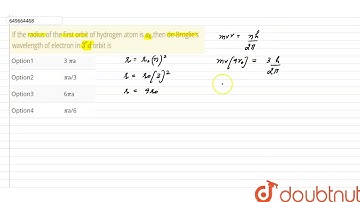 649664468
If the radius of the first orbit of hydrogen atom is a₀, then de-Broglie's
wavelength of electron in 3rd orbit is
Option1 3 πa
Option2 πa/3
Option3 6πa
Option4 πa/6
r = r₀(n)²
r = r₀(3)²
r = 9r₀
mvr = nh/2π
mv(9r₀) = 3h/2π
doubtnut